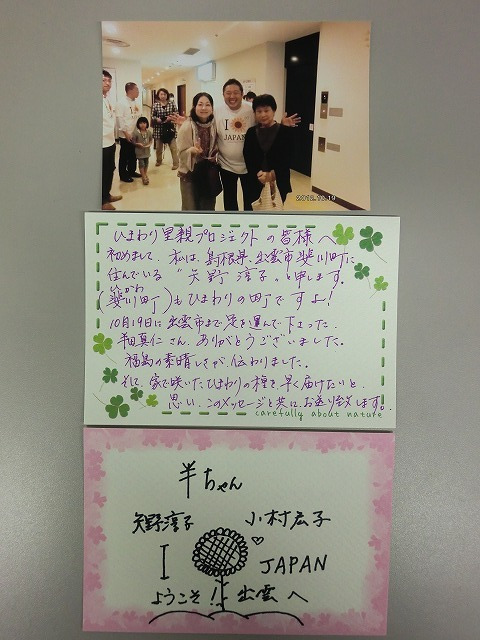 I
JAPAN
2012.10.19
ひまわり里親プロジェクトの皆様へ
初めまして。私は、島根県出雲市斐川町に
住んでいる "矢野淳子"と申します。
ひかわ
(斐川町)もひまわりの町ですよ!
10月19日に出雲市まで足を運んで下さった、
半田真仁さん、ありがとうございました。
福島の素晴しさが伝わりました。
そして、家で咲いたひまわりの種を早く届けたいと、
思い、このメッセージと共に、お送り致します。
carefully about nature
羊ちゃん
矢野淳子 小村宏子
I JAPAN
ようこそ!出雲へ